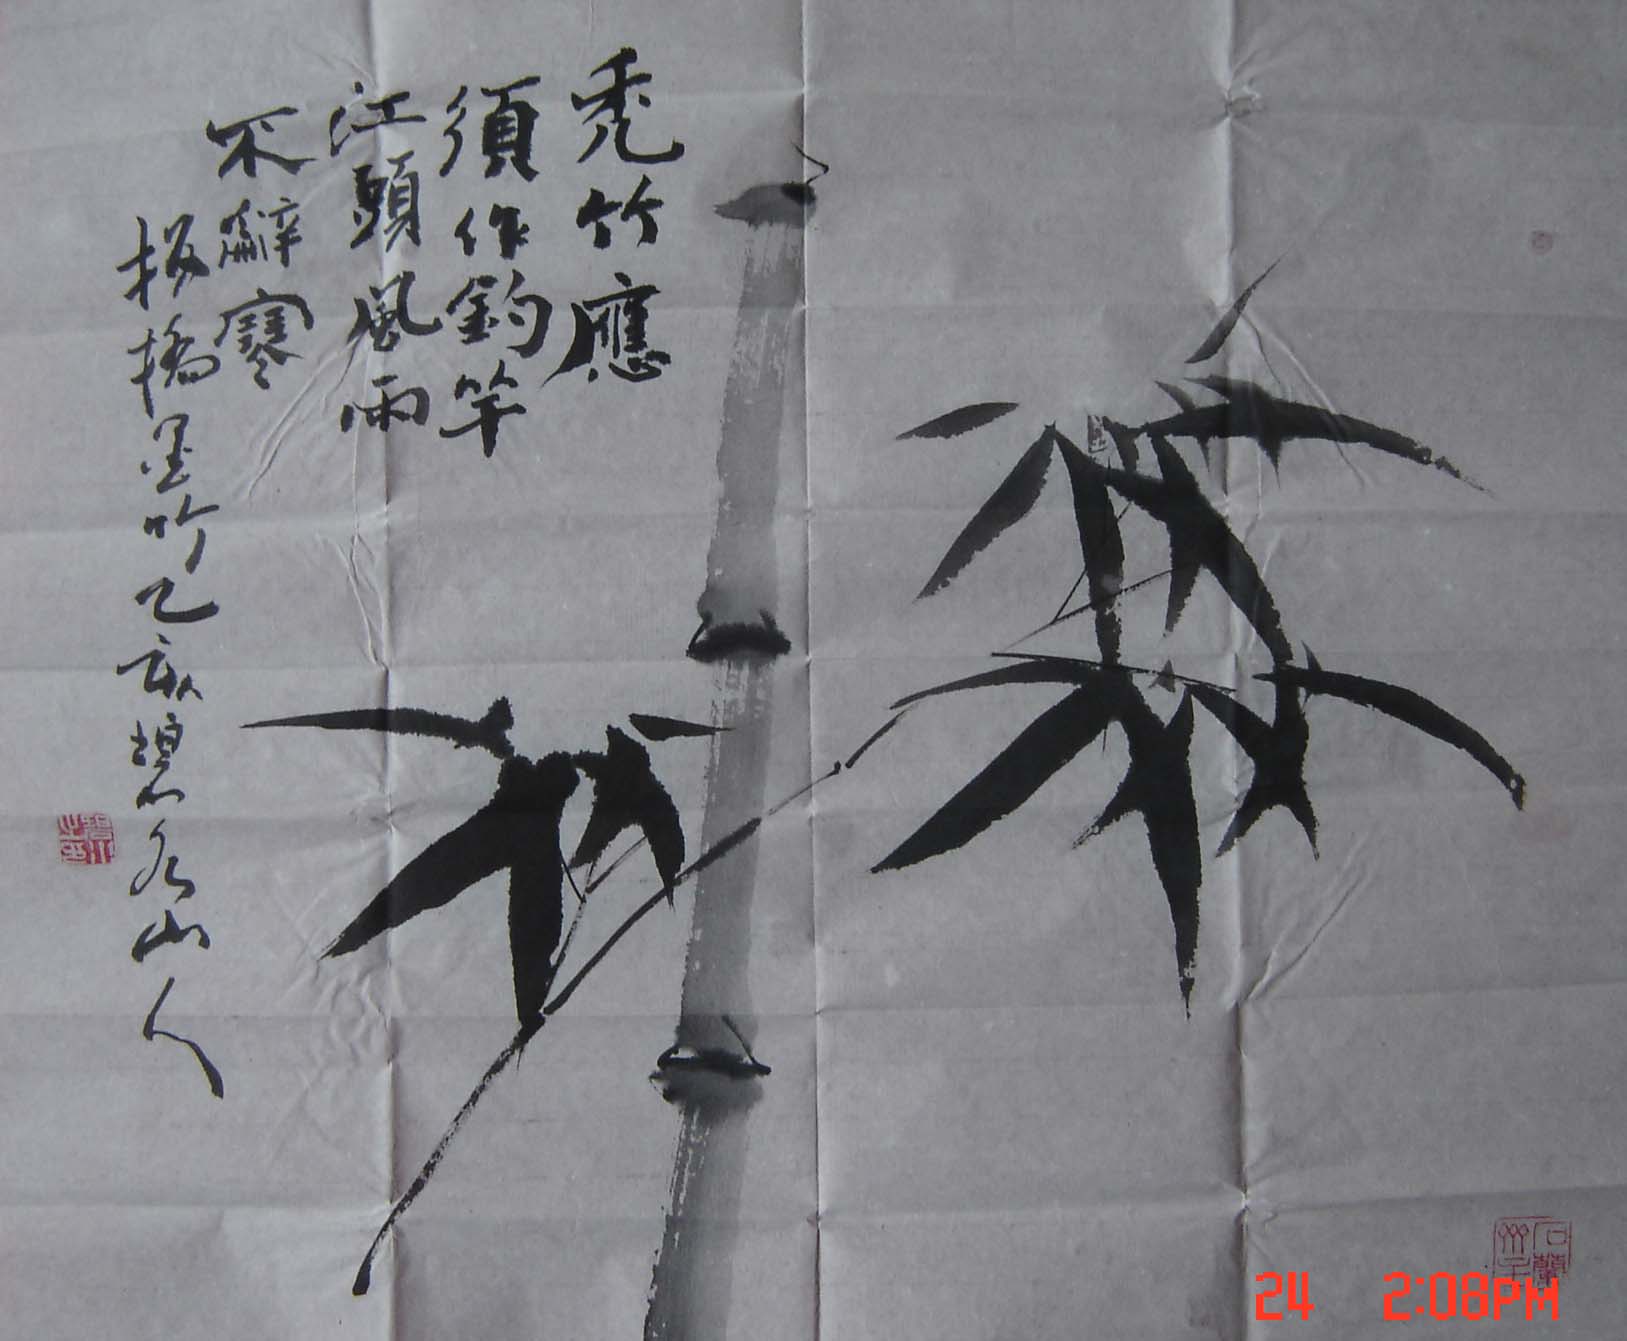 秃竹應
須作釣竿
江頭風雨
不辭寒
板橋墨竹乙亥碧山人
24 2:08PM